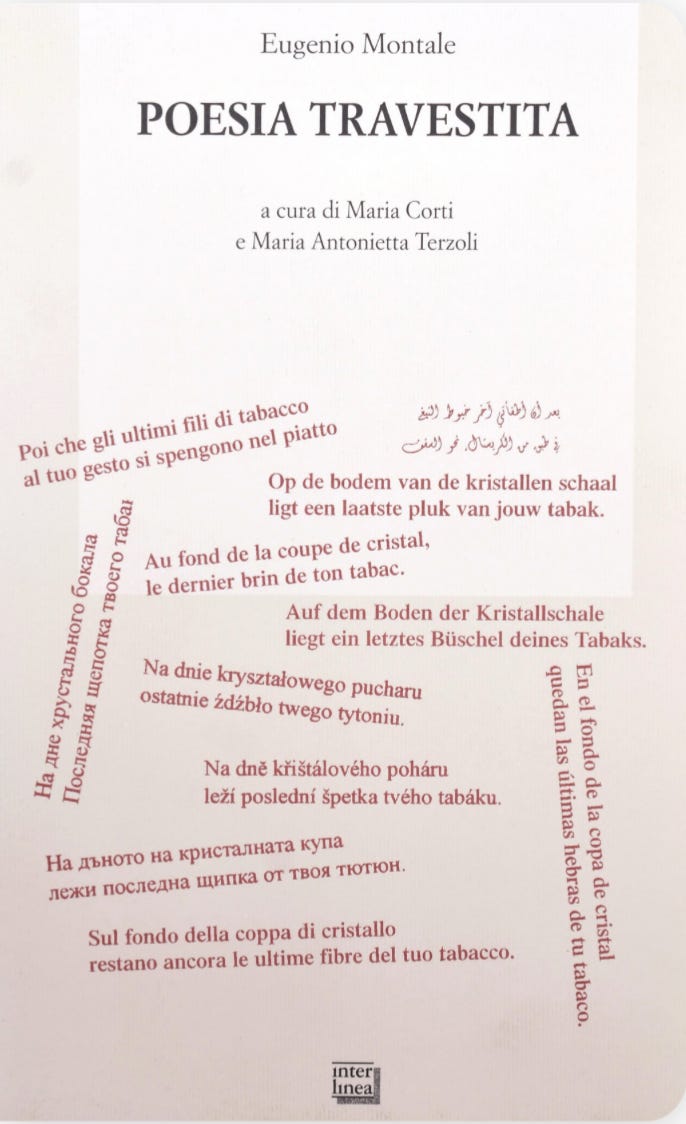 Eugenio Montale
POESIA TRAVESTITA
a cura di Maria Corti
e Maria Antonietta Terzoli
Poi che gli ultimi fili di tabacco
al tuo gesto si spengono nel piatto
بعد أن أطفأتِ آخر خيوط التبغ
في طبق من الكريستال، نحو السقف
Op de bodem van de kristallen schaal
ligt een laatste pluk van jouw tabak.
Au fond de la coupe de cristal,
le dernier brin de ton tabac.
На дне хрустального бокала
Последняя щепотка твоего табак
Auf dem Boden der Kristallschale
liegt ein letztes Büschel deines Tabaks.
Na dnie kryształowego pucharu
ostatnie źdźbło twego tytoniu.
En el fondo de la copa de cristal
quedan las últimas hebras de tu tabaco.
Na dně křištálového poháru
leží poslední špetka tvého tabáku.
На дъното на кристалната купа
лежи последна щипка от твоя тютюн.
Sul fondo della coppa di cristallo
restano ancora le ultime fibre del tuo tabacco.
inter
linea